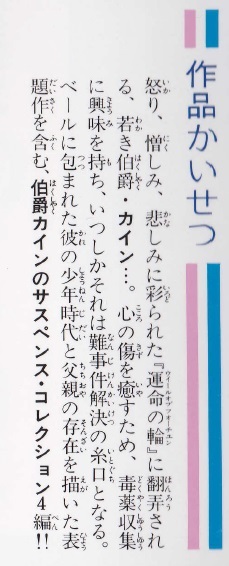 作品かいせつ
怒り、憎しみ、悲しみに彩られた『運命の輪』に翻弄され
る、若き伯爵・カイン…。心の傷を癒すため、毒薬収集
に興味を持ち、いつしかそれは難事件解決の糸口となる。
ベールに包まれた彼の少年時代と父親の存在を描いた表
題作を含む、伯爵カインのサスペンス・コレクション4編!!